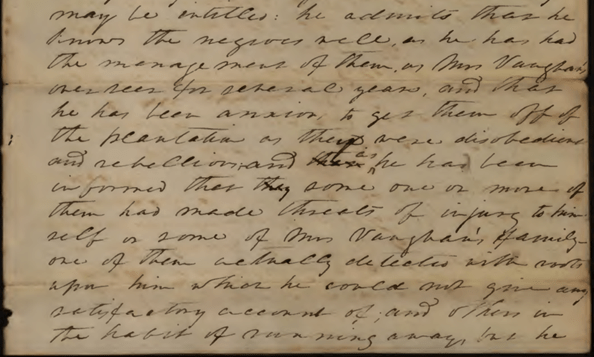 may be entitled: he admits that he
knows the negroes well, as he has had
the management of them, as Mrs Vaughan's
overseer for several years, and that
he has been anxious to get them off of
the plantation as they were disobedient
and rebellious, and as he had been
informed that some one or more of
them had made threats of injury to him
self or some of Mrs Vaughan's family
one of them actually detected with roots
upon him which he could not give any
satisfactory account of; and others in
the habit of running away, but he